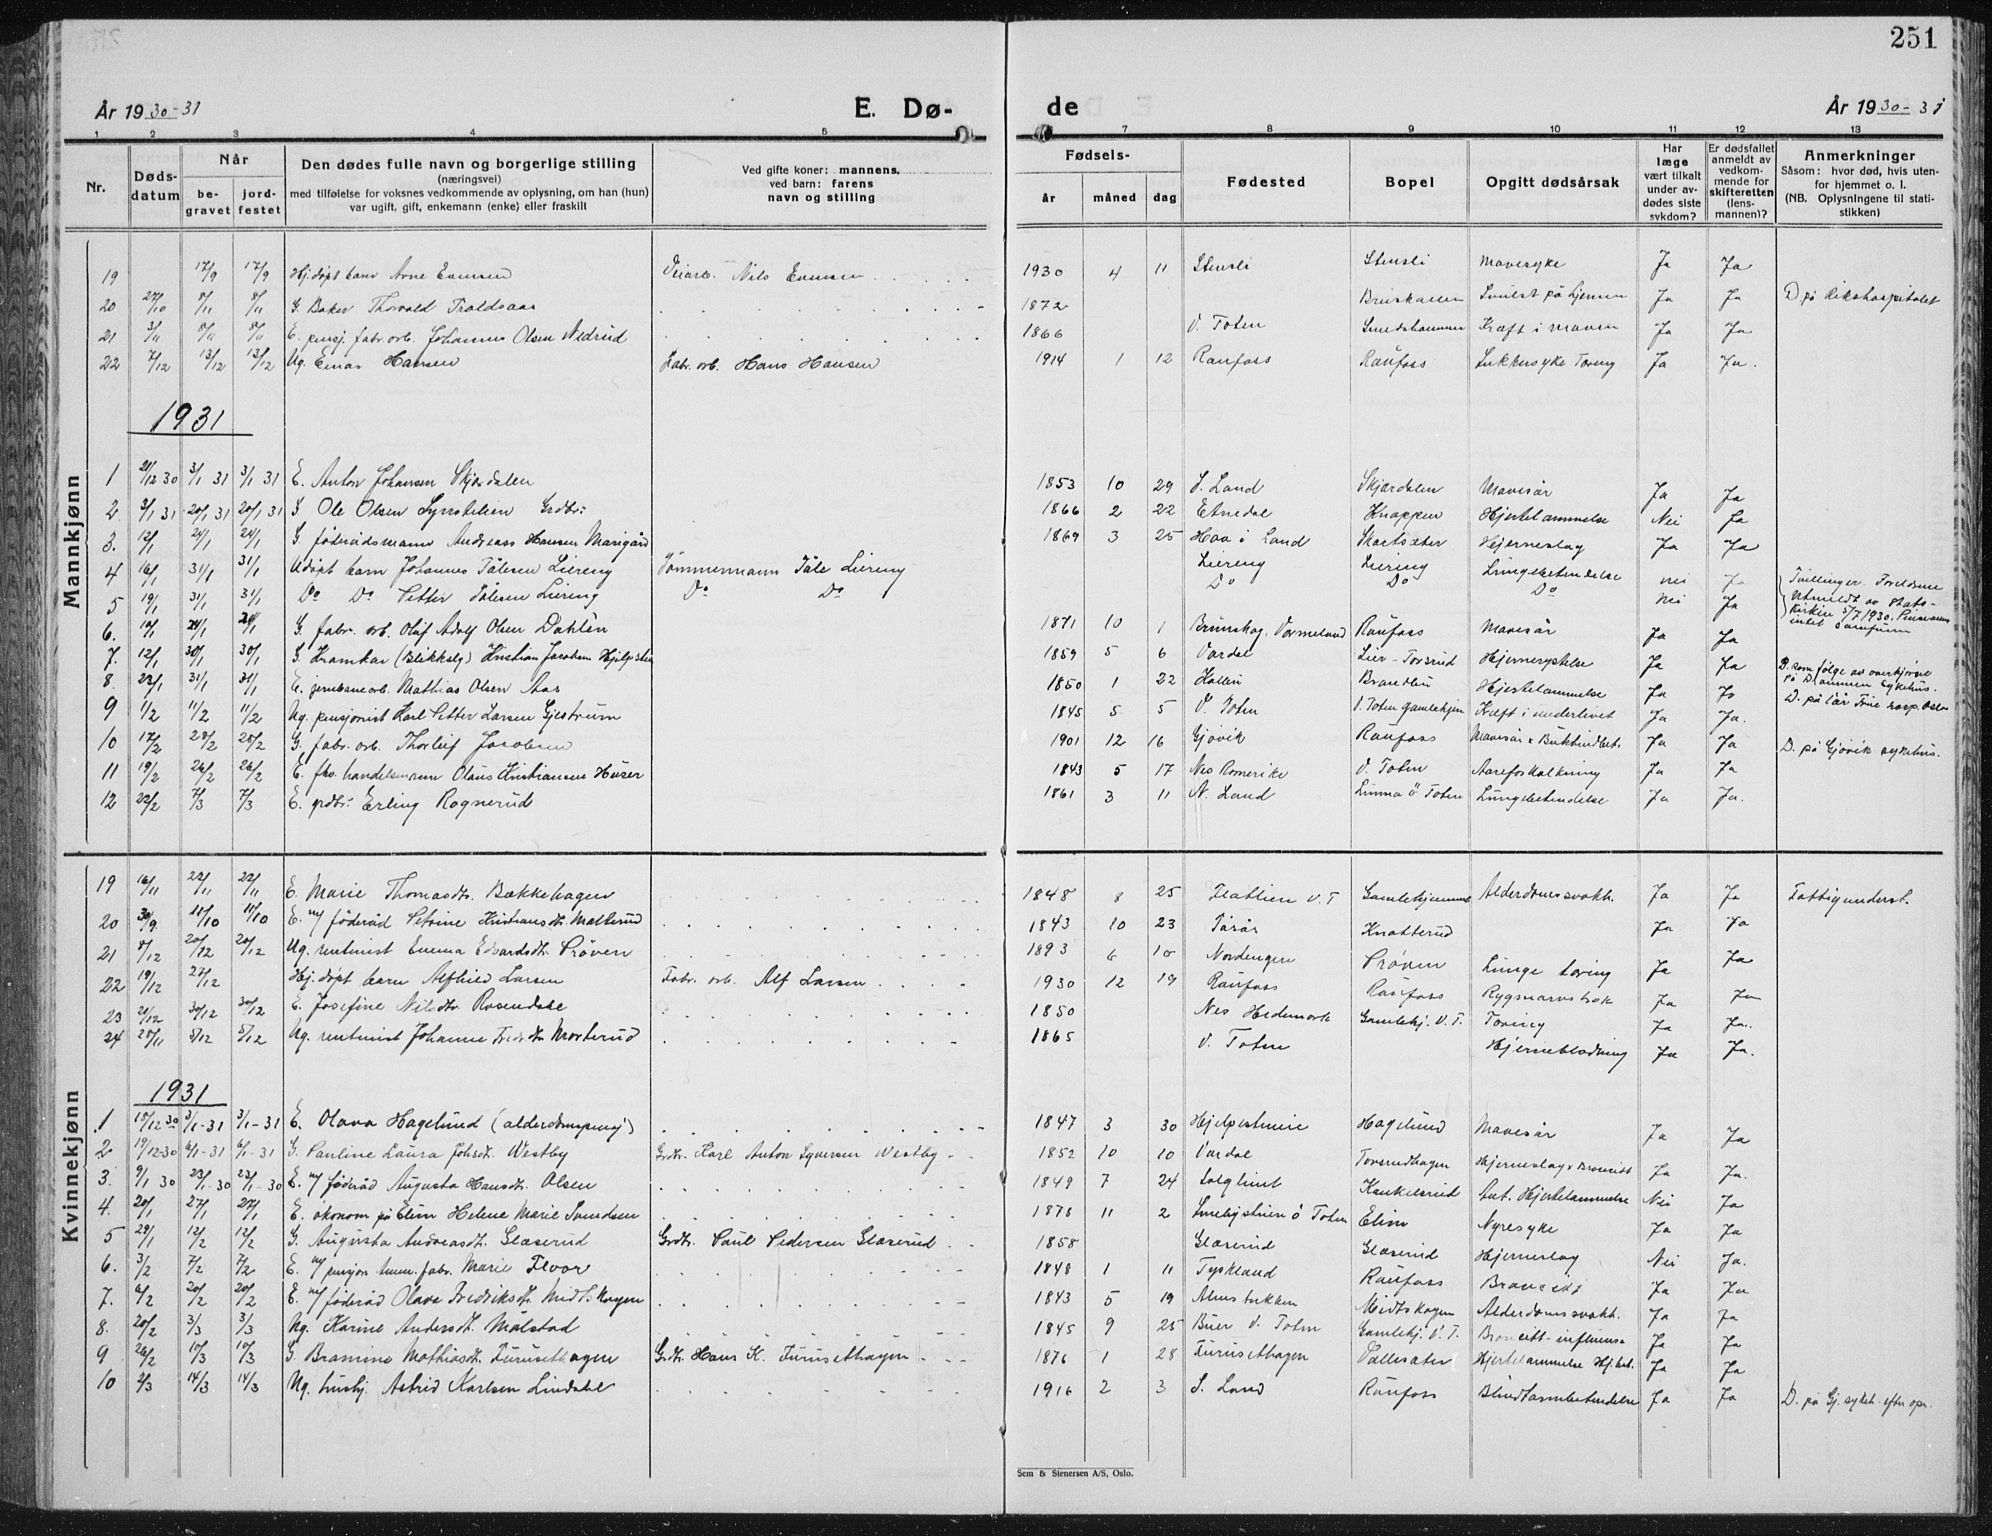 251
År 1930-31 E. Dø- de År 1930-31
1 2 3 4 5 7 8 9 10 11 12 13
Nr. Døds-datum Når be-gravet jord-festet Den dødes fulle navn og borgerlige stilling (næringsvei) med tilføielse for voksnes vedkommende av oplysning, om han (hun) var ugift, gift, enkemann (enke) eller fraskilt Ved gifte koner: mannens, ved barn: farens navn og stilling Fødsels- år måned dag Fødested Bopel Opgitt dødsårsak Har læge vært tilkalt under av-dødes siste sykdom? Er dødsfallet anmeldt av vedkom-mende for skifteretten (lens-mannen)? Anmerkninger Såsom: hvor død, hvis uten-for hjemmet o. l. (NB. Oplysningene til stati-stikken)
Mannkjønn
19 17/9 17/9 Hj. døpt barn Arne Evensen Veiarb. Nils Evensen 1930 4 11 Stensli Stensli Mavesyke Ja Ja
20 27/10 8/11 8/11 G. Baker Thorvald Troldsaas 1872 Svulst på hjernen Ja Ja D på Rikshospitalet
21 3/11 8/11 8/11 E. pensj. fabr. arb. Johannes Olsen Nedrud 1866 V. Toten Smedshammer Kræft i maven Ja Ja
22 7/12 13/12 13/12 Ug. Einar Hansen Fabr. arb. Hans Hansen 1914 1 12 Raufoss Raufoss Sukkersyke Tæring Ja Ja.
1931
1 21/12 30 3/1 31 3/1 31 E. Anton Johansen Skjærdalen 1853 10 29 S. Land Skjærdalen Mavesår Ja Ja
2 3/1 31 20/1 31 20/1 31 G Ole Olsen Grdbr: 1866 2 22 Etnedal Knappen Hjertelammelse Nei Ja
3. 12/1 24/1 24/1 G føderådsmann Andreas Hansen Marigård 1869 3 25 Hov i Land Skartsæter Hjerneslag Ja Ja
4 16/1 31/1 31/1 Udøpt barn Johannes Tålesen Liereng Tømmermann Tåle Liereng Liereng Liereng Lungebetendelse nei Ja Tvillinger. Foreldrene
5 19/1 31/1 31/1 Do Do Petter Tålesen Liereng Do Do Do Do Do nei Ja utmeldt av Stats-
kirken 5/7 1930. Pinsevennene
6. 10/1 24/1 24/1 G. fabr. arb. Olaf Adolf Olsen Dahlen 1871 10 1 Brunskog. Vermeland Raufoss Mavesår Ja Ja
7. 12/1 30/1 30/1 G. Kramkar (Blikkslg) Kristian Jacobsen 1859 5 6 Vardal Lier - Torsrud Hjernerystelse Ja Ja D. som følge av overkjørsel
8. 23/1 31/1 31/1 E. jernbanearb. Mathias Olsen Aas 1850 1 22 Brandbu Hjertelammelse Ja Ja på Drammen Sykehus.
9 1/2 11/2 11/2 Ug. pensjonist Karl Petter Larsen Gjestrum 1845 5 5 V. Toten V. Toten Gamlehjem Kræft i underlivet Ja Ja. D. på Vår Frue hosp. Oslo
10 17/2 28/2 28/2 G. fabr. arb. Thorleif Jacobsen 1901 12 16 Gjøvik Raufoss Mavesår & Bukhindbet. Ja Ja D. på Gjøvik sykehus.
11 19/2 26/2 26/2 E. fhv. handelsmann Olaus Kristiansen Huser 1843 5 17 Nes Romerike V. Toten Aareforkalkning Ja Ja
12 22/2 7/3 7/3 E. grdbr: Erling Rognerud 1861 3 11 N. Land Ø Toten Lungebetendelse Ja Ja.
Kvinnekjønn
19 16/11 22/11 22/11 E. Marie Thomasdtr. Bækkehagen 1848 8 25 Flatlien V. T Gamlehjemmet Alderdomssvakh. Ja Ja Fattigunderst.
20 30/9 11/10 11/10 E. m/ føderåd Petrine Kristiansdtr Matterud 1843 10 23 Knatterud Ja Ja
21 8/12 20/12 20/12 Ug. rentenist Emma Edvardsdtr. Prøven 1893 6 10 Nordengen Prøven Lunge tæring Ja Ja
22 19/12 27/12 Hj. døpt barn Alfhild Larsen Fabr. arb. Alf Larsen 1930 12 19 Raufoss Raufoss Rygmarvsbrok Ja Ja
23 21/12 30/12 30/12 E. Josefine Nilsdtr. Rosendahl 1850 Nes Hedemark Gamlehj. V. T. Tæring Ja Ja.
24 28/11 5/12 5/12 Ug. rentenist Johanne Fredrdtr. Morterud 1865 V. Toten Hjerneblødning Ja Ja.
1931
1 18/12 30 3/1-31 3/1-31 E. Olava Hagelund (alderdomspensj) 1847 3 30 Hagelund Mavesår Ja Ja
2 19/12-30 6/1-31 6/1-31 G. Pauline Laura Johsdtr. Westby Grdbr. Karl Anton Syversen Westby 1852 10 10 Vardal Torsrudhagen Hjerneslag & Broncitt Ja Ja.
3. 9/1 30 23/1-30 23/1-30 E. m/ føderåd Augusta Hansdtr. Olsen 1849 7 24 Solglimt Kankelsrud Hjertelammelse Nei Ja
4. 20/1 27/1 27/1 E. økonom på Elim Helene Marie Svendsen 1878 11 2 Ø Toten Elim Nyresyke Ja Ja
5 29/1 12/2 12/2 G. Augusta Andreasdtr. Glæserud Grdbr. Paul Pedersen Glæserud 1858 Glæserud Glæserud Hjerneslag Nei Ja.
6. 3/2 7/2 7/2 E. m/ pensjon amm. fabr. Marie Flvor 1848 1 11 Tyskland Raufoss Broncitt Ja Ja
7. 6/2 20/2 20/2 E. m/ føderåd Olava Fredriksdtr Midtskogen 1843 5 19 Midtskogen Alderdomssvakh. Ja Ja
8. 20/2 3/3 3/3 Ug. Karine Andersdtr. Målstad 1845 9 25 V. Toten Gamlehj. V. T. Broncitt - influensa Ja Ja
9 26/2 10/3 10/3 G. Bramine Mathiasdtr. Furusethagen Grdbr. Hans K. Furusethagen 1876 1 28 Furusethagen Hjertelammelse Ja Ja
10 2/3 14/3 14/3 Ug. husbj. Astrid Karlsen Lindahl 1916 2 3 S. Land Raufoss Blindtarmbetendelse Ja Ja D. på Gj. sykeh. efter opr.
Sem & Stenersen A/S, Oslo.